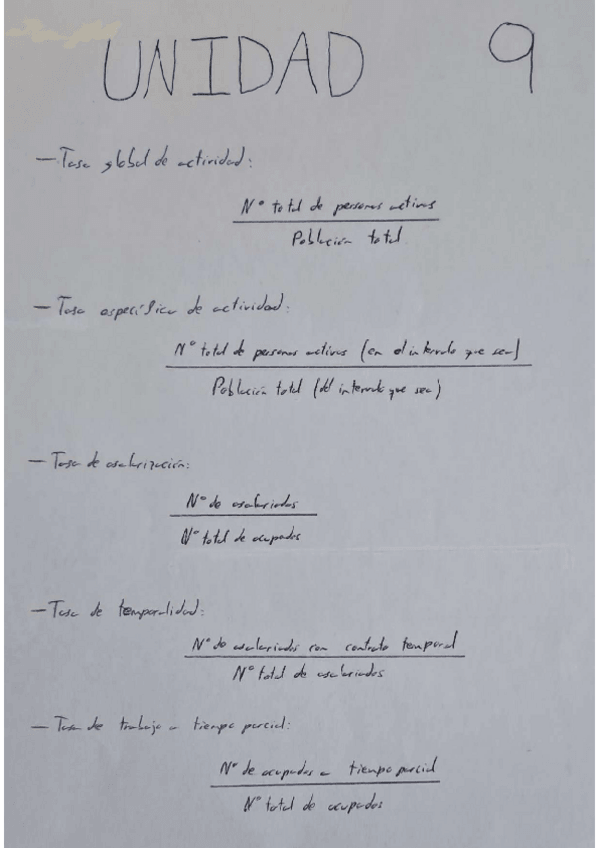 UNIDAD 9
- Tasa global de actividad:
Nº total de personas activas
Población total
- Tasa específica de actividad:
Nº total de personas activas (en el intervalo que sea)
Población total (del intervalo que sea)
- Tasa de asalarización:
Nº de asalariados
Nº total de ocupados
- Tasa de temporalidad:
Nº de asalariados con contrato temporal
Nº total de asalariados
- Tasa de trabajo a tiempo parcial:
Nº de ocupados a tiempo parcial
Nº total de ocupados